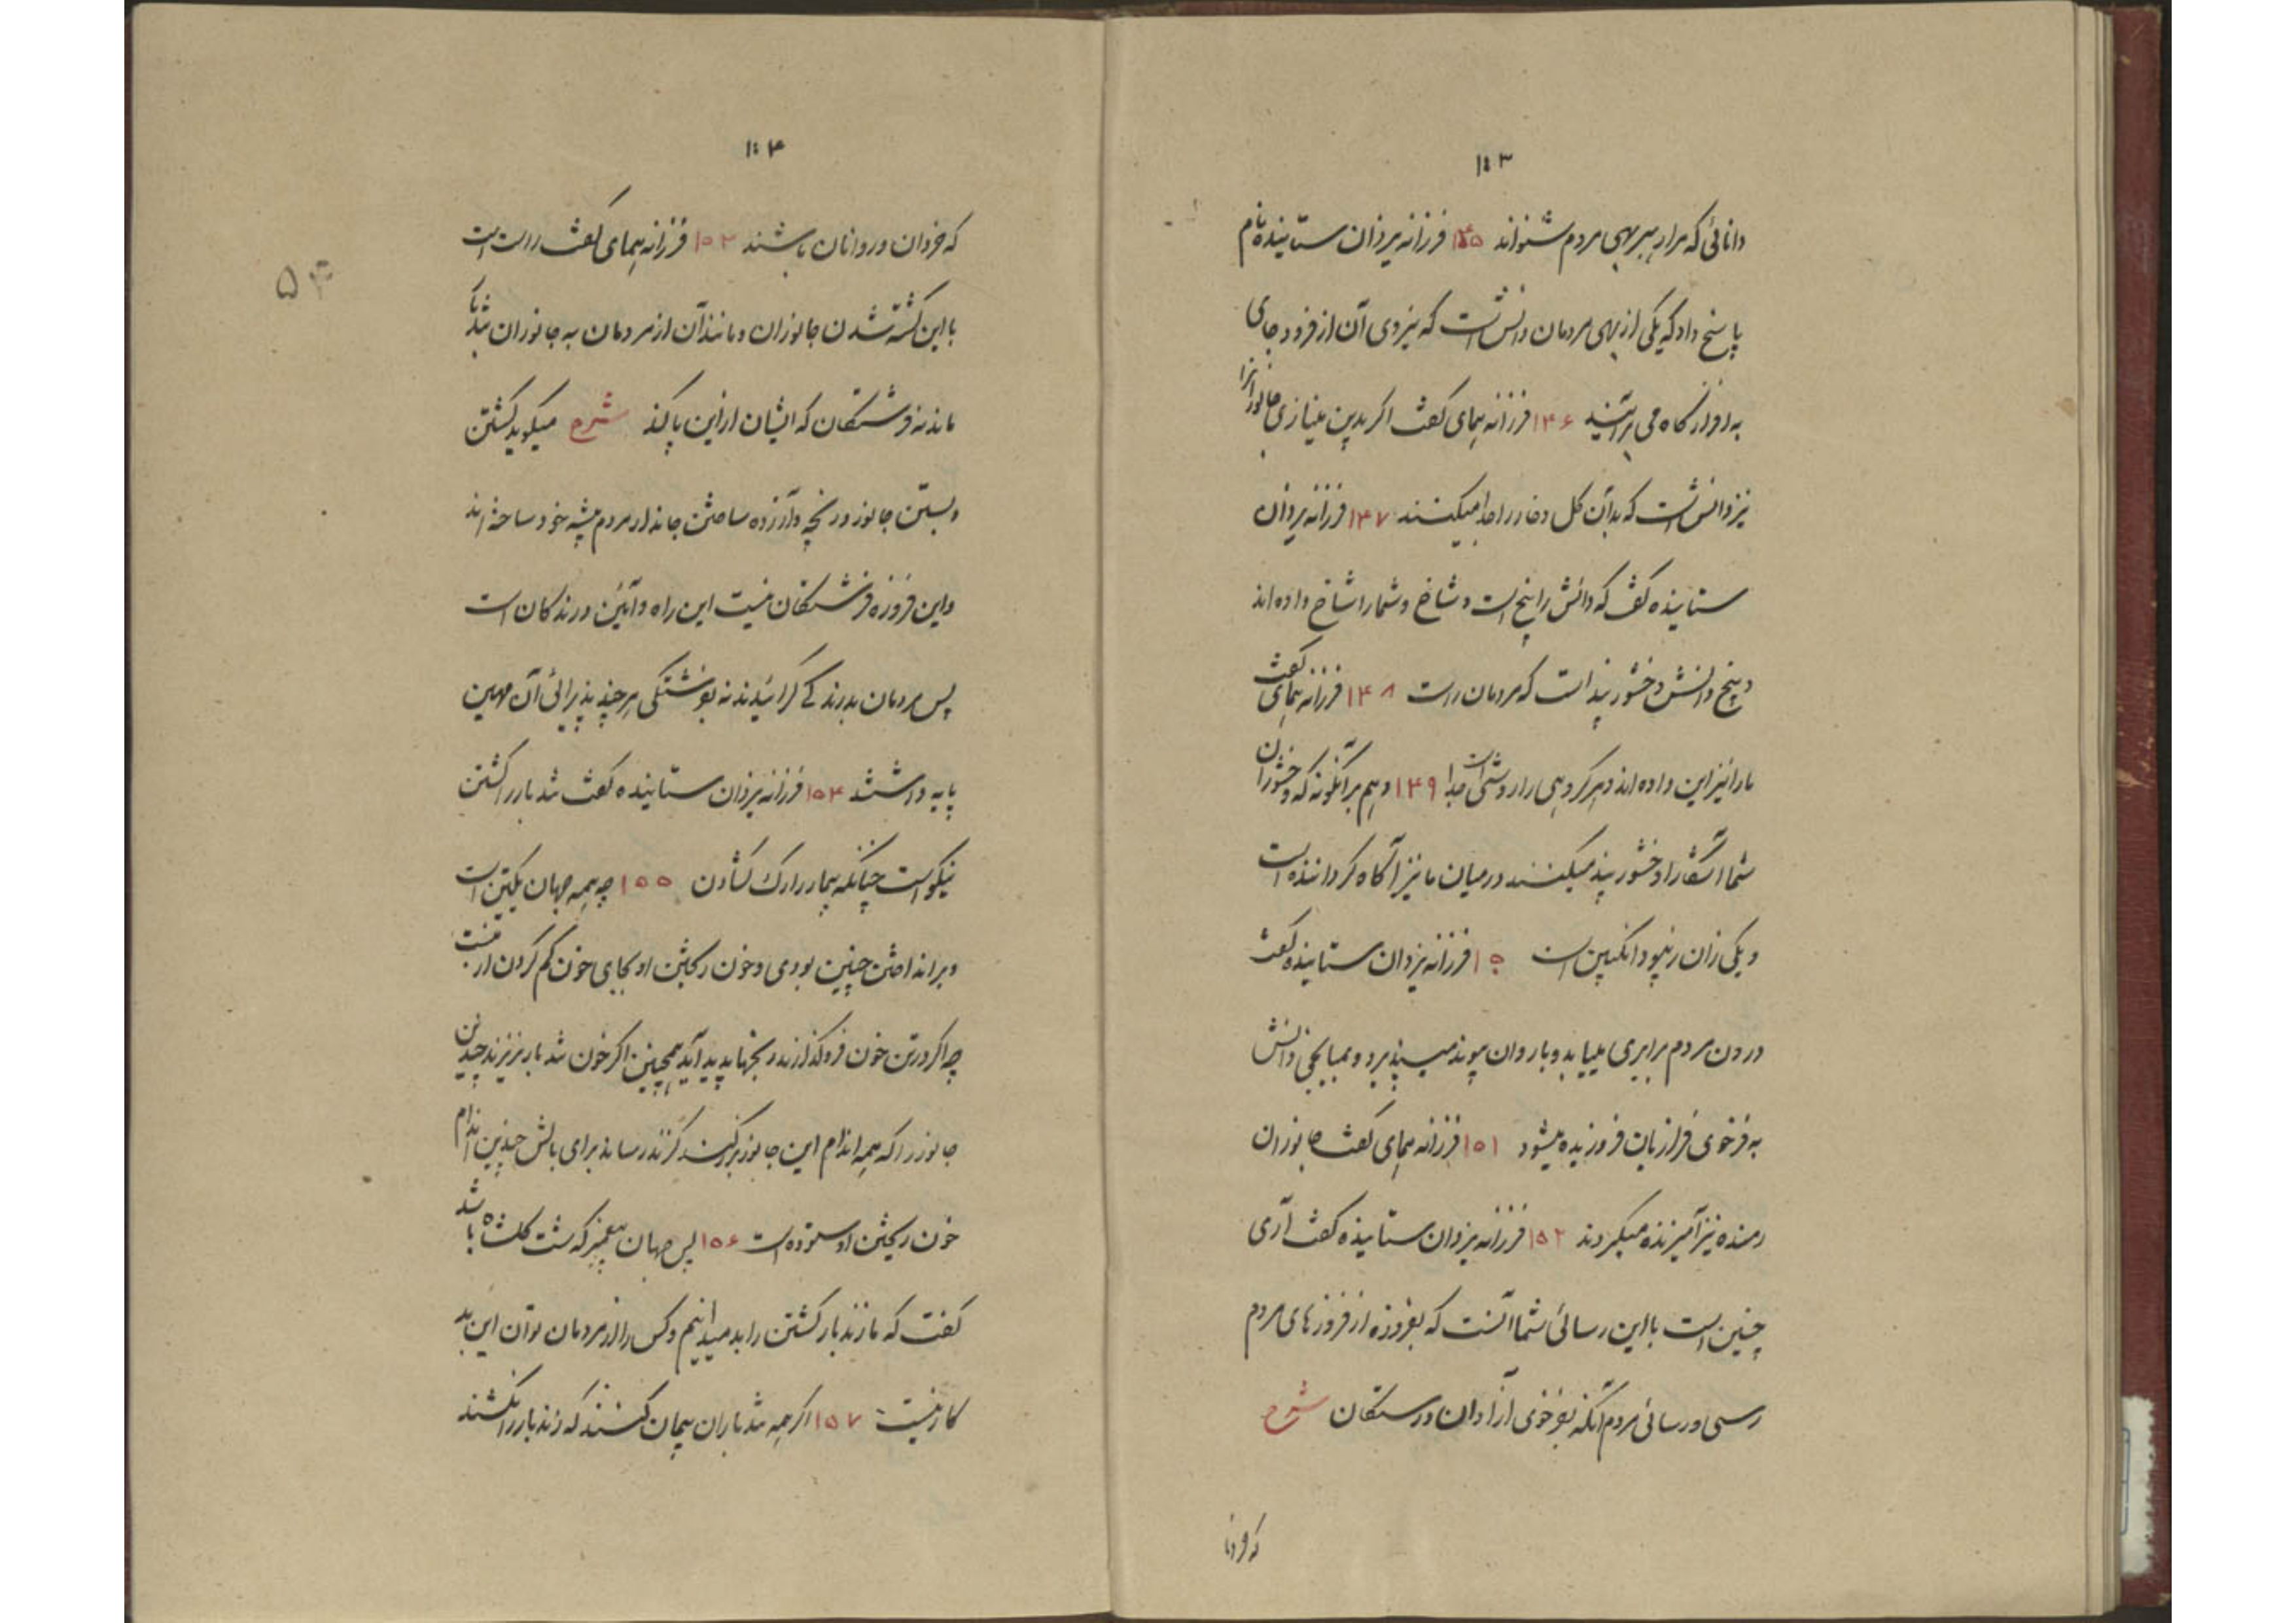 ۱۰۳
دانائی که مرا رهبر بهی مردم شنواند ۱۴۵ فرزانه یزدان ستاینده نام
پاسخ داد که یکی از بهی مردمان دانش است که بنیروی آن از فرود جای
به افراز گاه می برآیند ۱۴۶ فرزانه همای گفت اگر بدین مینازی جانورانرا
نیز دانش است که بدان گل و خار را جدا میکنند ۱۴۷ فرزانه یزدان
ستاینده گفت که دانش را بیخ است و شاخ و شما را شاخ داده اند
و بیخ دانش وخشور پند است که مردمان راست ۱۴۸ فرزانه همای گفت
ما را نیز این داده اند و هر گروهی را روشی است جدا ۱۴۹ و هم بر آنگونه که وخشوران
شما آشکارا وخشور پند میکنند در میان ما نیز آگاه گرداننده است
و یکی زان زنبور انگبین است ۱۵۰ فرزانه یزدان ستاینده گفت
در دون مردم برابری مییابد و با روان پیوند میپذیرد و بمیانجی دانش
به فرخوی فرازیان فروزیده میشود ۱۵۱ فرزانه همای گفت جانوران
رمنده نیز آمیزنده میگردند ۱۵۲ فرزانه یزدان ستاینده گفت آری
چنین است با این رسائی شما آنست که بفروزه از فروزهای مردم
رسی و رسائی مردم آنکه بفرخوی آزادان و رستگان شرح
که فردنا
۱۰۴
که خردان و روانان باشند ۱۵۳ فرزانه همای گفت راست است
با این کشته شدن جانوران و مانند آن از مردمان به جانوران تندبار
ماند نه فرشتگان که ایشان از این پاکند شرح میگوید کشتن
و بستن جانور و رنجه و آزرده ساختن جاندار مردم پیشه خود ساخته اند
و این فروزه فرشتگان نیست این راه و آئین درندگان است
پس مردمان بدرندگی گرائیدند نه بفرشتگی هر چند پذیرائی آن مهین
پایه داشتند ۱۵۴ فرزانه یزدان ستاینده گفت تندبار را کشتن
نیکو است چنانکه بیمار را رگ گشادن ۱۵۵ چه همه جهان یکتن است
و برانداختن چنین بودی و خون ریختن او بجای خون کم کردن از تنست
چه اگر در تن خون فزو گذارند رنجها پدید آید همچنین اگر خون تندبار نریزند چندین
جانور را که همه اندام این جانور بزرگست گزند رساند برای بالش چندین اندام
خون ریختن او ستوده است ۱۵۶ پس جهان پیغمبر که شت گلشاه باشد
گفت که ما زندبار کشتن را بد میدانیم و کس را از مردمان توان این بد
کار نیست ۱۵۷ اگر همه تندباران پیمان کنند که زندبار را نکشند
۵۴